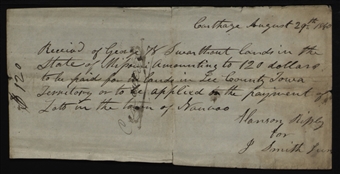 Carthage August 29th 1840
Receivd of George W Swarthout lands in the
State of Illinois amounting to 120 dollars
to be paid for in lands in Lee County Iowa
Territory or to be applied on the payment of
Lots in the town of Nauvoo
Hanson Riply
for
J Smith
120